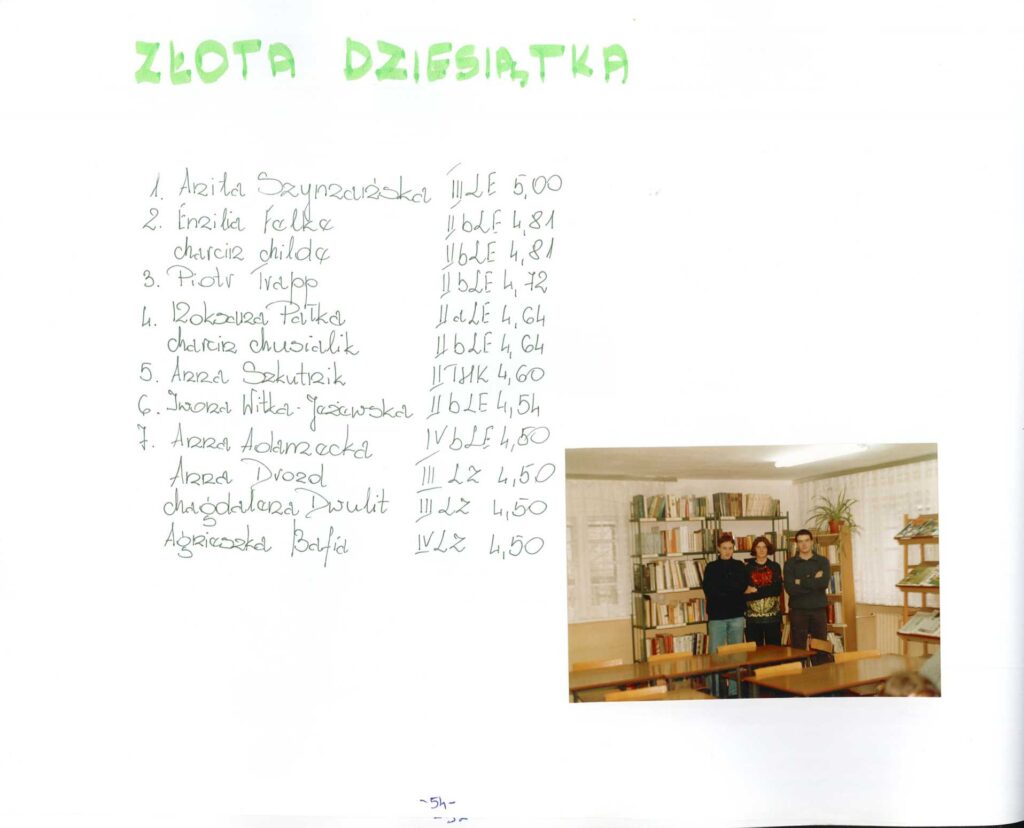 ZŁOTA DZIESIĄTKA
1. Anita Szynzauńska III LE 5,00
2. Emilia Falkę II b LE 4,81
Marcin Childe II b LE 4,81
3. Piotr Trapp II b LE 4,72
4. Roksana Pałka II a LE 4,64
Marcin Musialik II b LE 4,64
5. Anna Szkutnik II THK 4,60
6. Iwona Witka-Jeżewska II b LE 4,54
7. Anna Adamzecka IV b LE 4,50
Anna Drozd III LZ 4,50
Magdalena Dwulit III LZ 4,50
Agnieszka Bafia IV LZ 4,50
-54-